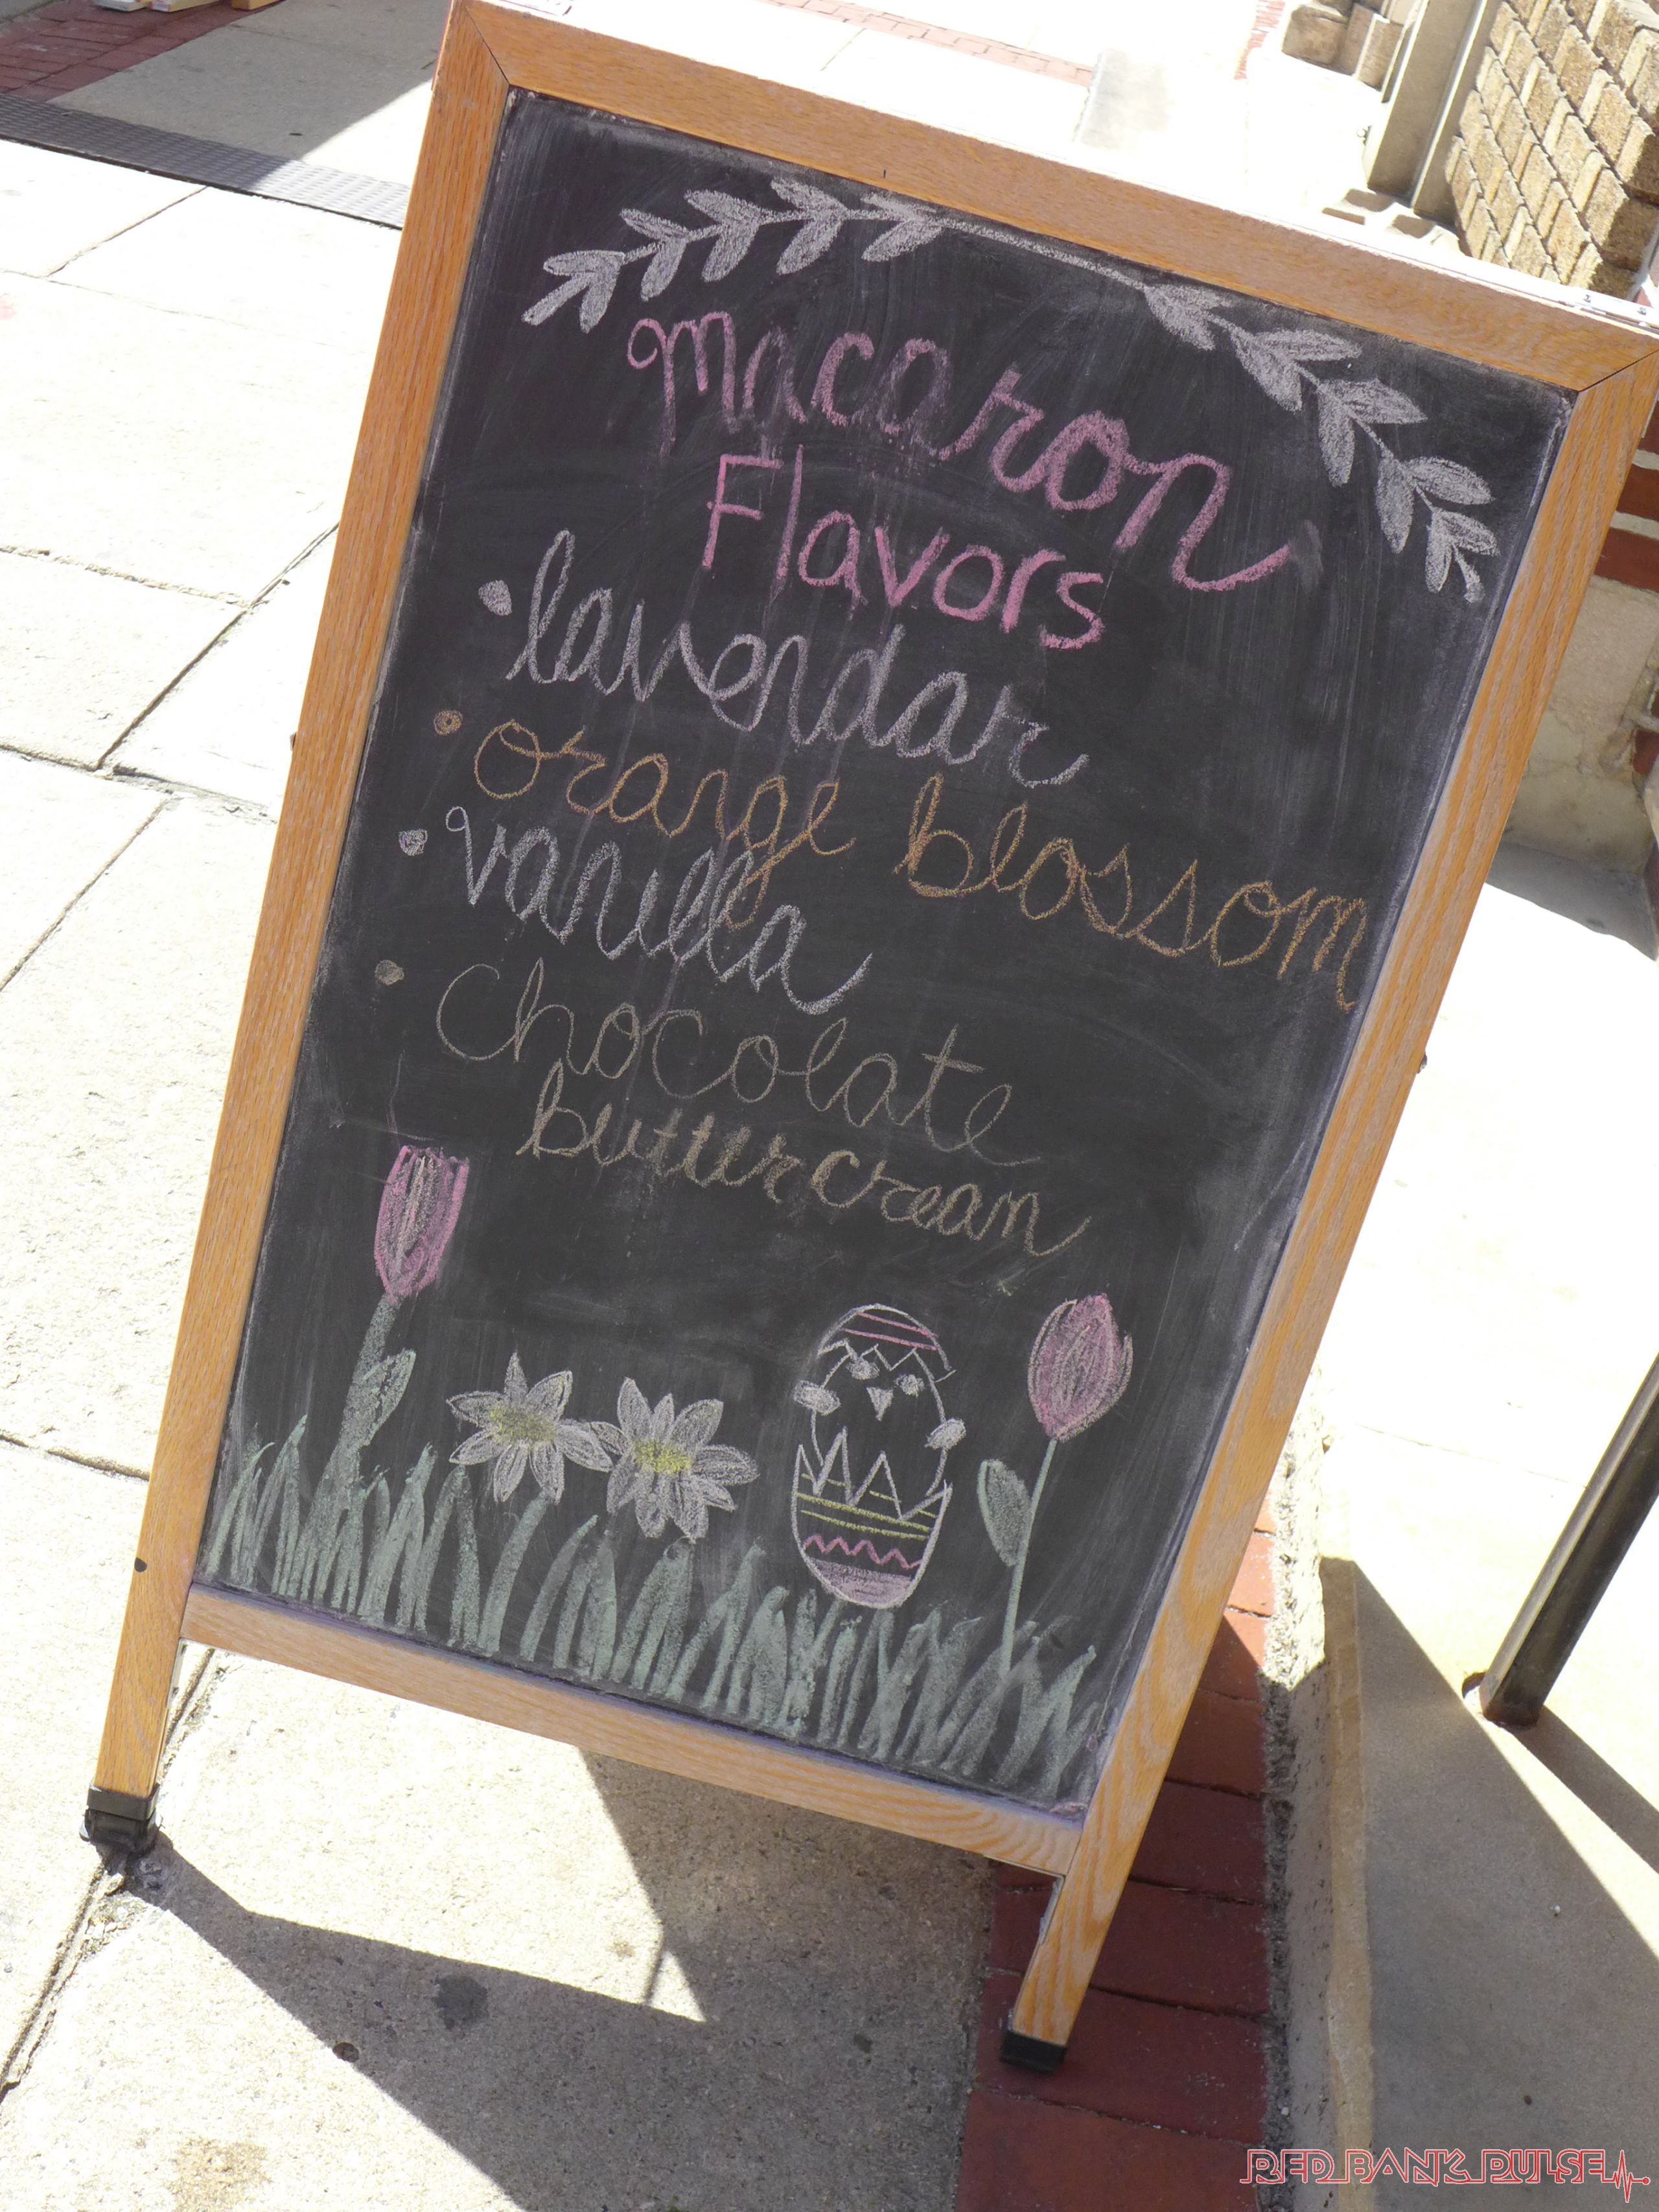 macaron
Flavors
• lavendar
• orange blossom
• vanilla
• chocolate
buttercream
RED BANK PULSE